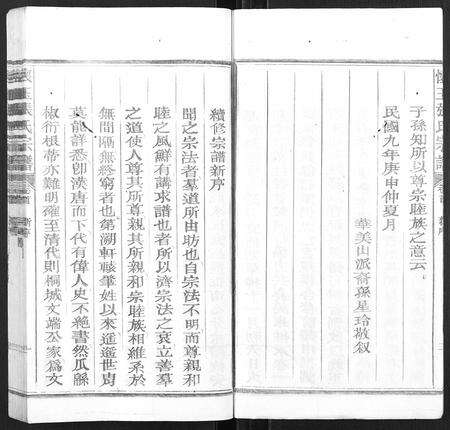 子孫知所以尊宗睦族之意云
民國九年庚申仲夏月
華美山派裔孫星珍敬叙
續修宗譜新序
聞之宗法者羣道所由昉也自宗法不明而尊親和
睦之風鮮有講求譜也者所以濟宗法之衰立善羣
之道使人尊其所尊親其所親和宗睦族相維系於
無間穪無終窮者也第溯軒轅肇姓以來遥遥世胄
莫能詳悉卽漢唐而下代有偉人史不絶書然瓜緜
椒衍根蒂亦難明確至清代則桐城文端公家為文
張氏宗譜
新序